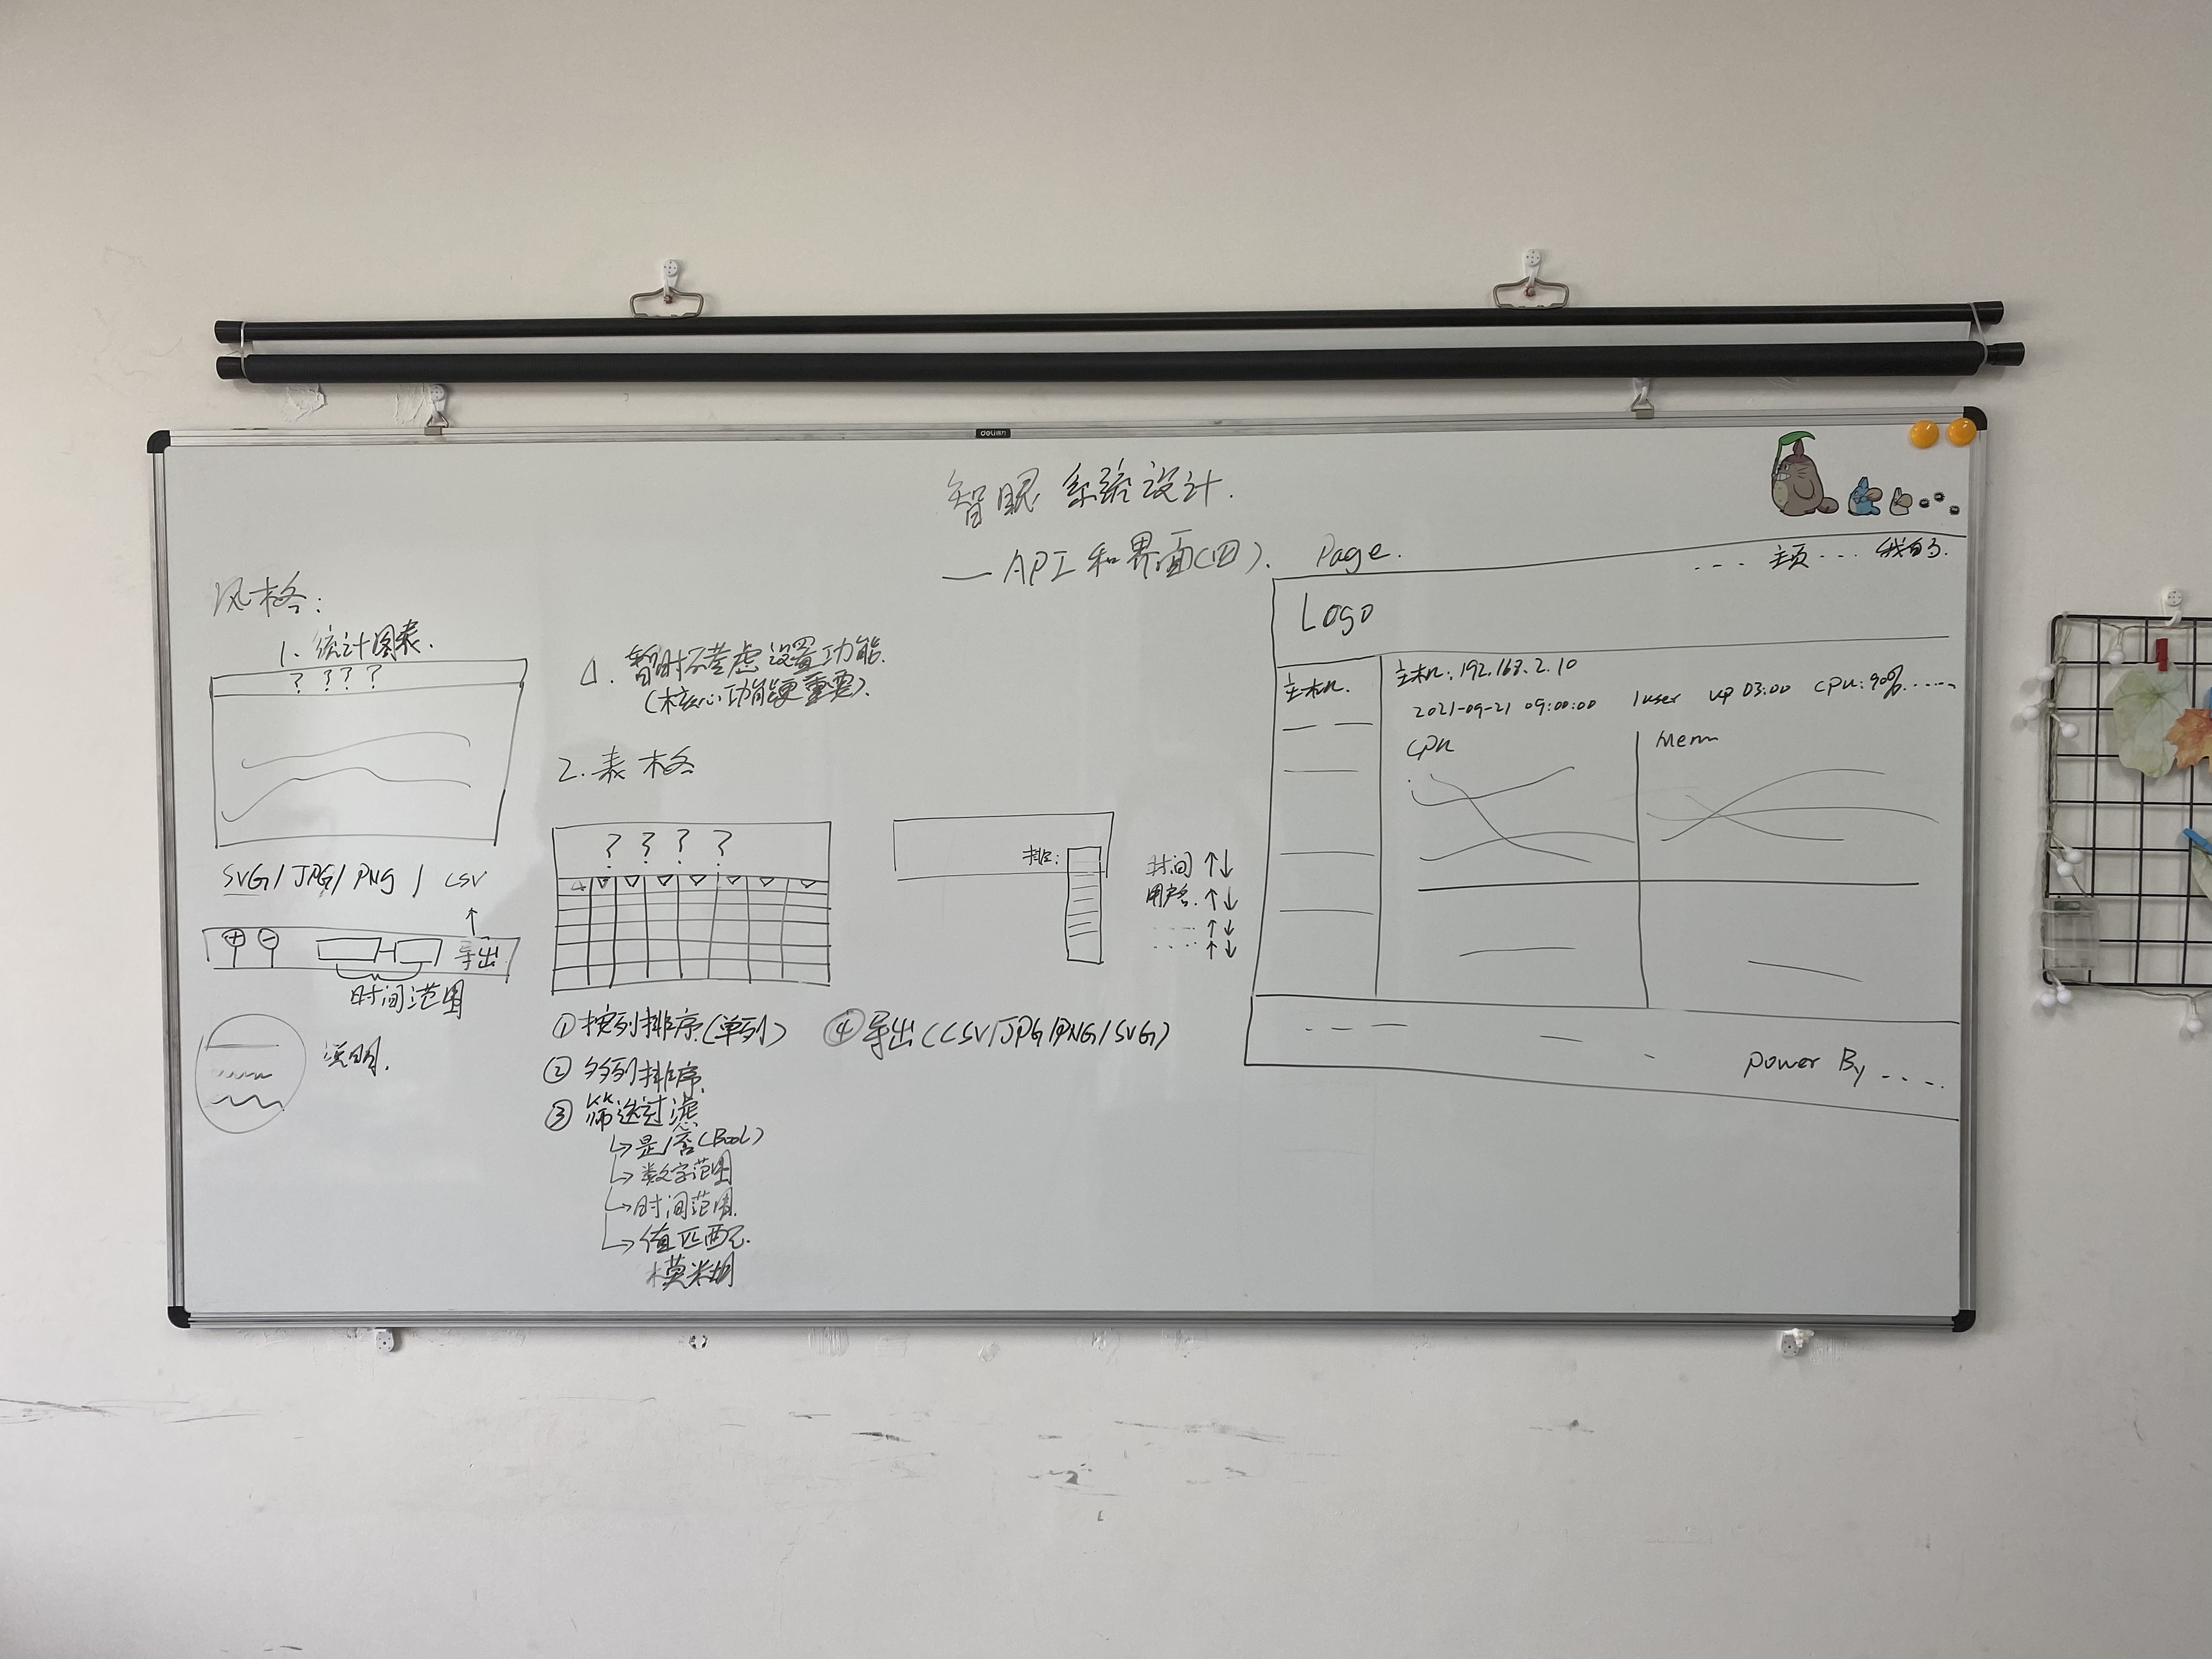 deli 得力
智眼 系统设计.
— API 和界面(四).
风格:
1. 统计图表.
? ? ? ?
SVG / JPG / PNG / CSV
导出
时间范围
说明.
△. 暂时不考虑设置功能.
(核心功能更重要).
2. 表格
? ? ? ?
排序:
时间 ↑↓
用户名. ↑↓
.... ↑↓
.... ↑↓
① 按列排序(单列)
② 多列排序.
③ 筛选过滤
↳ 是/否(Bool)
↳ 数字范围
↳ 时间范围.
↳ 值匹配.
模糊
④ 导出(CSV/JPG/PNG/SVG)
Page.
--- 主页... 我的.
Logo
主机.
主机: 192.168.2.10
2021-09-21 09:00:00 1user up 03:00 CPU:90%......
CPU
Mem
Power By ....